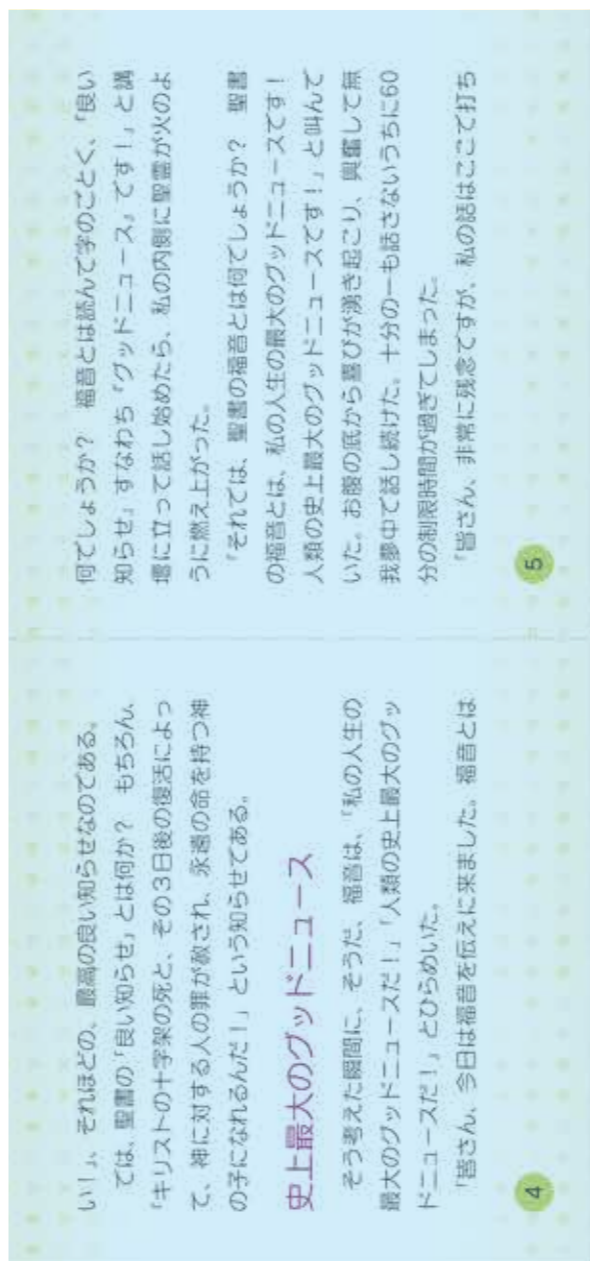 い！」、それほどの、最高の良い知らせなのである。
　では、聖書の「良い知らせ」とは何か？　もちろん、
「キリストの十字架の死と、その３日後の復活によっ
て、神に対する人の罪が赦され、永遠の命を持つ神
の子になれるんだ！」という知らせである。
史上最大のグッドニュース
　そう考えた瞬間に、そうだ、福音は、「私の人生の
最大のグッドニュースだ！」「人類の史上最大のグッ
ドニュースだ！」とひらめいた。
　「皆さん、今日は福音を伝えに来ました。福音とは
4
何でしょうか？　福音とは読んで字のごとく、「良い
知らせ」すなわち『グッドニュース』です！」と講
壇に立って話し始めたら、私の内側に聖霊が火のよ
うに燃え上がった。
　「それでは、聖書の福音とは何でしょうか？　聖書
の福音とは、私の人生の最大のグッドニュースです！
人類の史上最大のグッドニュースです！」と叫んで
いた。お腹の底から喜びが湧き起こり、興奮して無
我夢中で話し続けた。十分の一も話さないうちに60
分の制限時間が過ぎてしまった。
　「皆さん、非常に残念ですが、私の話はここで打ち
5